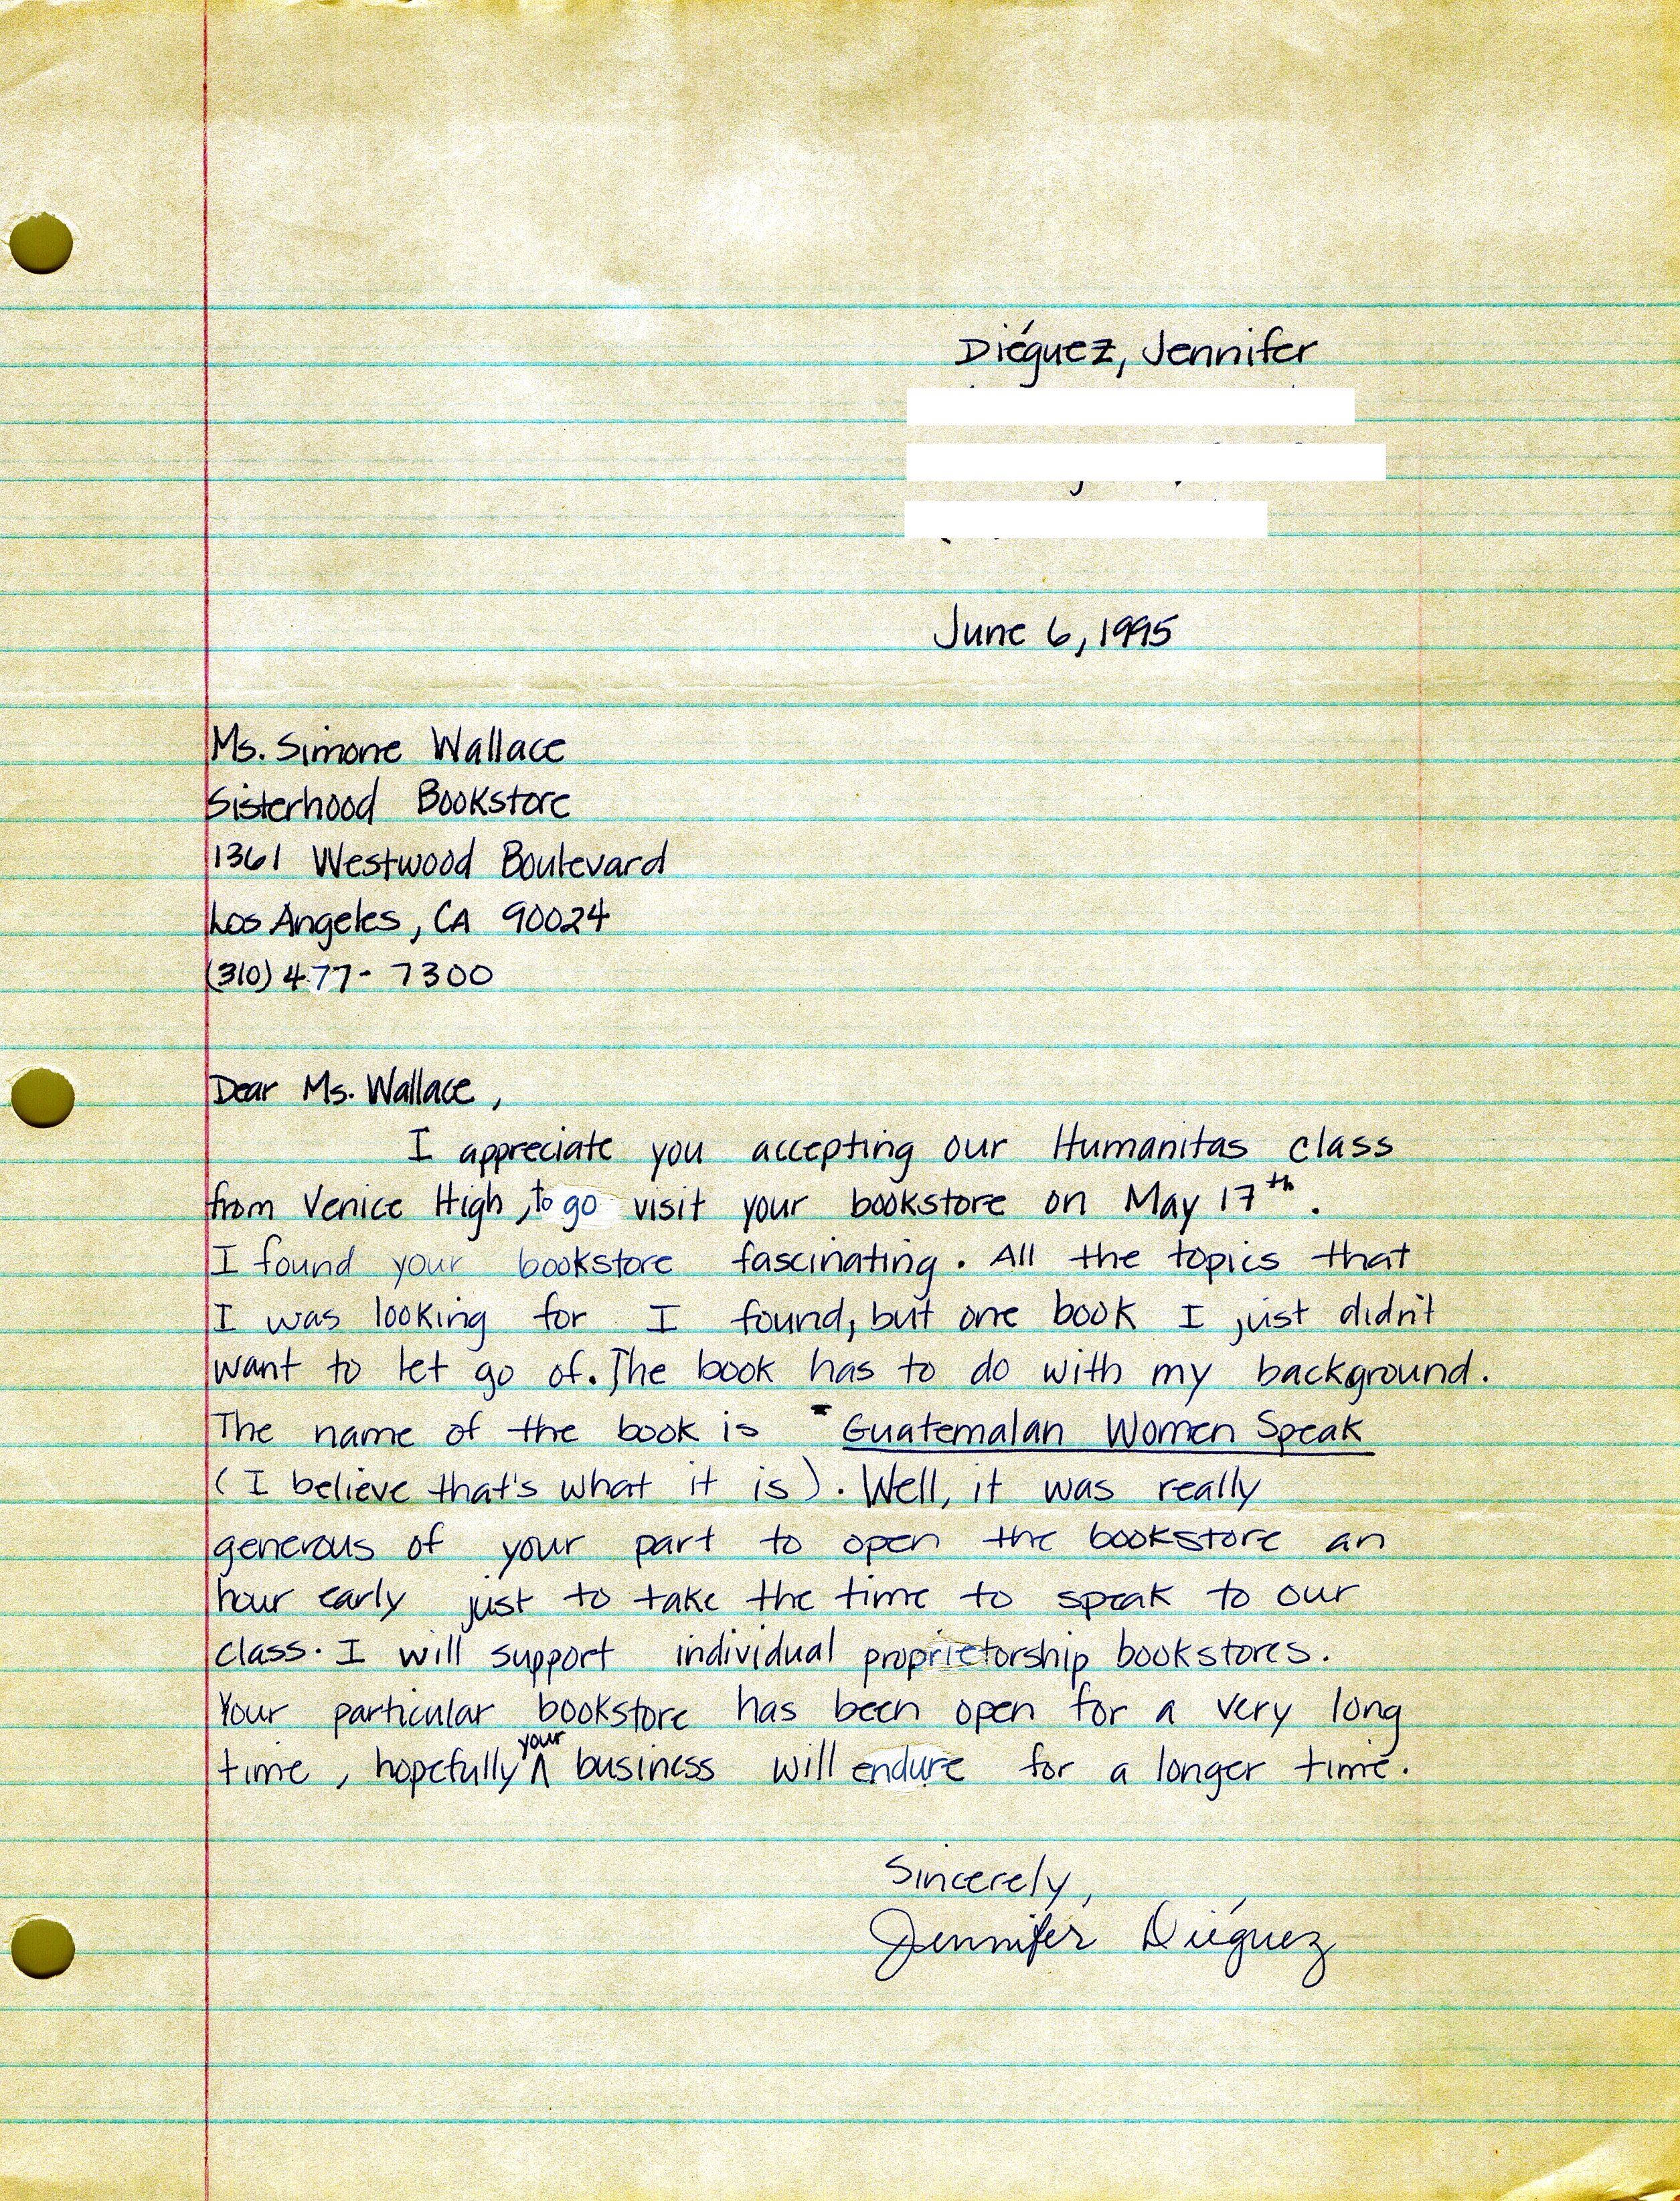 Diéguez, Jennifer
June 6, 1995
Ms. Simone Wallace
Sisterhood Bookstore
1361 Westwood Boulevard
Los Angeles, CA 90024
(310) 477-7300
Dear Ms. Wallace,
I appreciate you accepting our Humanitas class
from Venice High, to go visit your bookstore on May 17th.
I found your bookstore fascinating. All the topics that
I was looking for I found, but one book I just didn't
want to let go of. The book has to do with my background.
The name of the book is Guatemalan Women Speak
(I believe that's what it is). Well, it was really
generous of your part to open the bookstore an
hour early just to take the time to speak to our
class. I will support individual proprietorship bookstores.
Your particular bookstore has been open for a very long
time, hopefully your business will endure for a longer time.
Sincerely,
Jennifer Diéguez